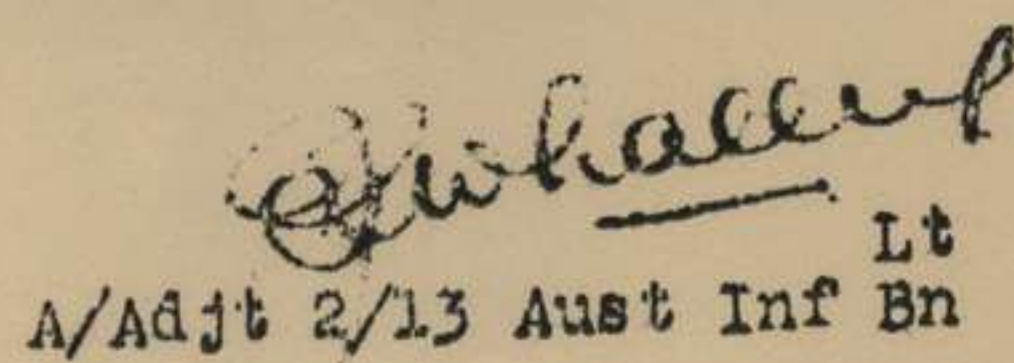 Lt
A/Adjt 2/13 Aust Inf Bn